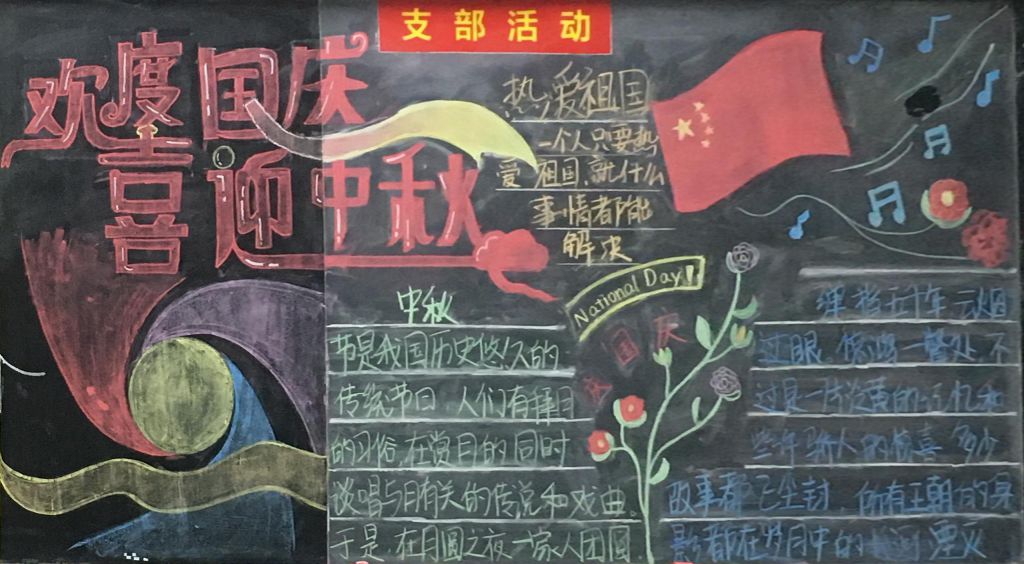 支部活动
欢度国庆
喜迎中秋
热爱祖国
一个人只要热
爱祖国,就什么
事情都能
解决
National Day!
国庆
中秋
节是我国历史悠久的
传统节日 人们有择日
的习俗,在赏月的同时
谈唱与月有关的传说和戏曲。
于是,在月圆之夜一家人团圆
弹指五十年 云烟
过眼 一瞥处 不
过是一片泛黄的 和
些许 人的惊喜 多少
故事都已尘封,所有王朝的身
影都在岁月中的